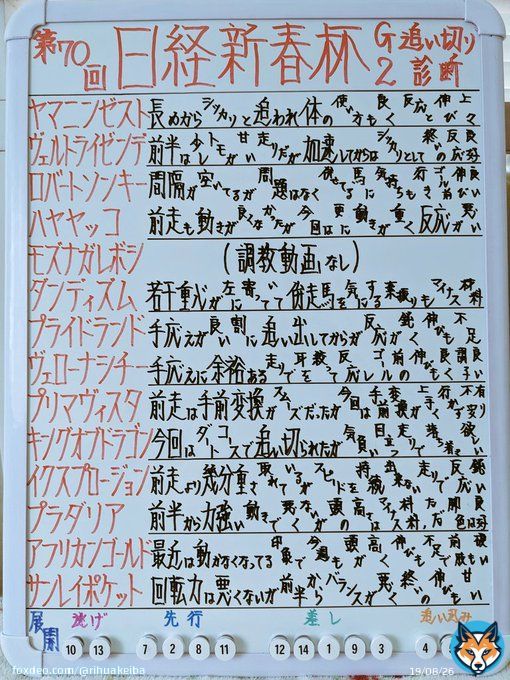 第70回 日経新春杯 G2 追い切り診断
ヤマニンゼスト 長めからシッカリと追われ体の使い方も良く反応も伸びも上々
ヴェルトライゼンデ 前半は少しトモが甘い走りだが加速してからはシッカリとして終いの反応も良好
ロバートソンキー 間隔が空いてるが問題はなく
ハヤヤッコ 前走も動きが良くなかったが今回は更に動きが重く反応が悪い
モズナガレボシ (調教動画なし)
ダンディズム 若干重心が左に寄っていて併走馬を気にする素振りもマイナス材料
プライドランド 手応えが良い割に追い出してからが反応が鈍く伸びも不足
ヴェローナシチー 手応えに余裕ある走りで
プリマヴィスタ 前走は手前変換がスムーズだったが今回は手前変換が上手く行かず
キングオブドラゴン 今回はダートコースで追い切られたが気負いが目立つ走りで落ち着きが欲しい
イクスプロージョン 前走より幾分重さは取れているがスピードを持続出来ない走りで反応が鈍い
プラダリア 前半から力強い動きで悪くないが頭の高さはマイナス材料だ
アフリカンゴールド 最近は動かなくなってる印象で今週も頭が高く伸びも不足で
サンレイポケット 回転力は悪くないが前半からバランスが悪く終いの伸びも甘い
展開 逃げ 先行 差し 追い込み
10 13 7 2 8 11 12 14 1 9 3 4
foxdeo.com/@rihuakeiba 19/08/26